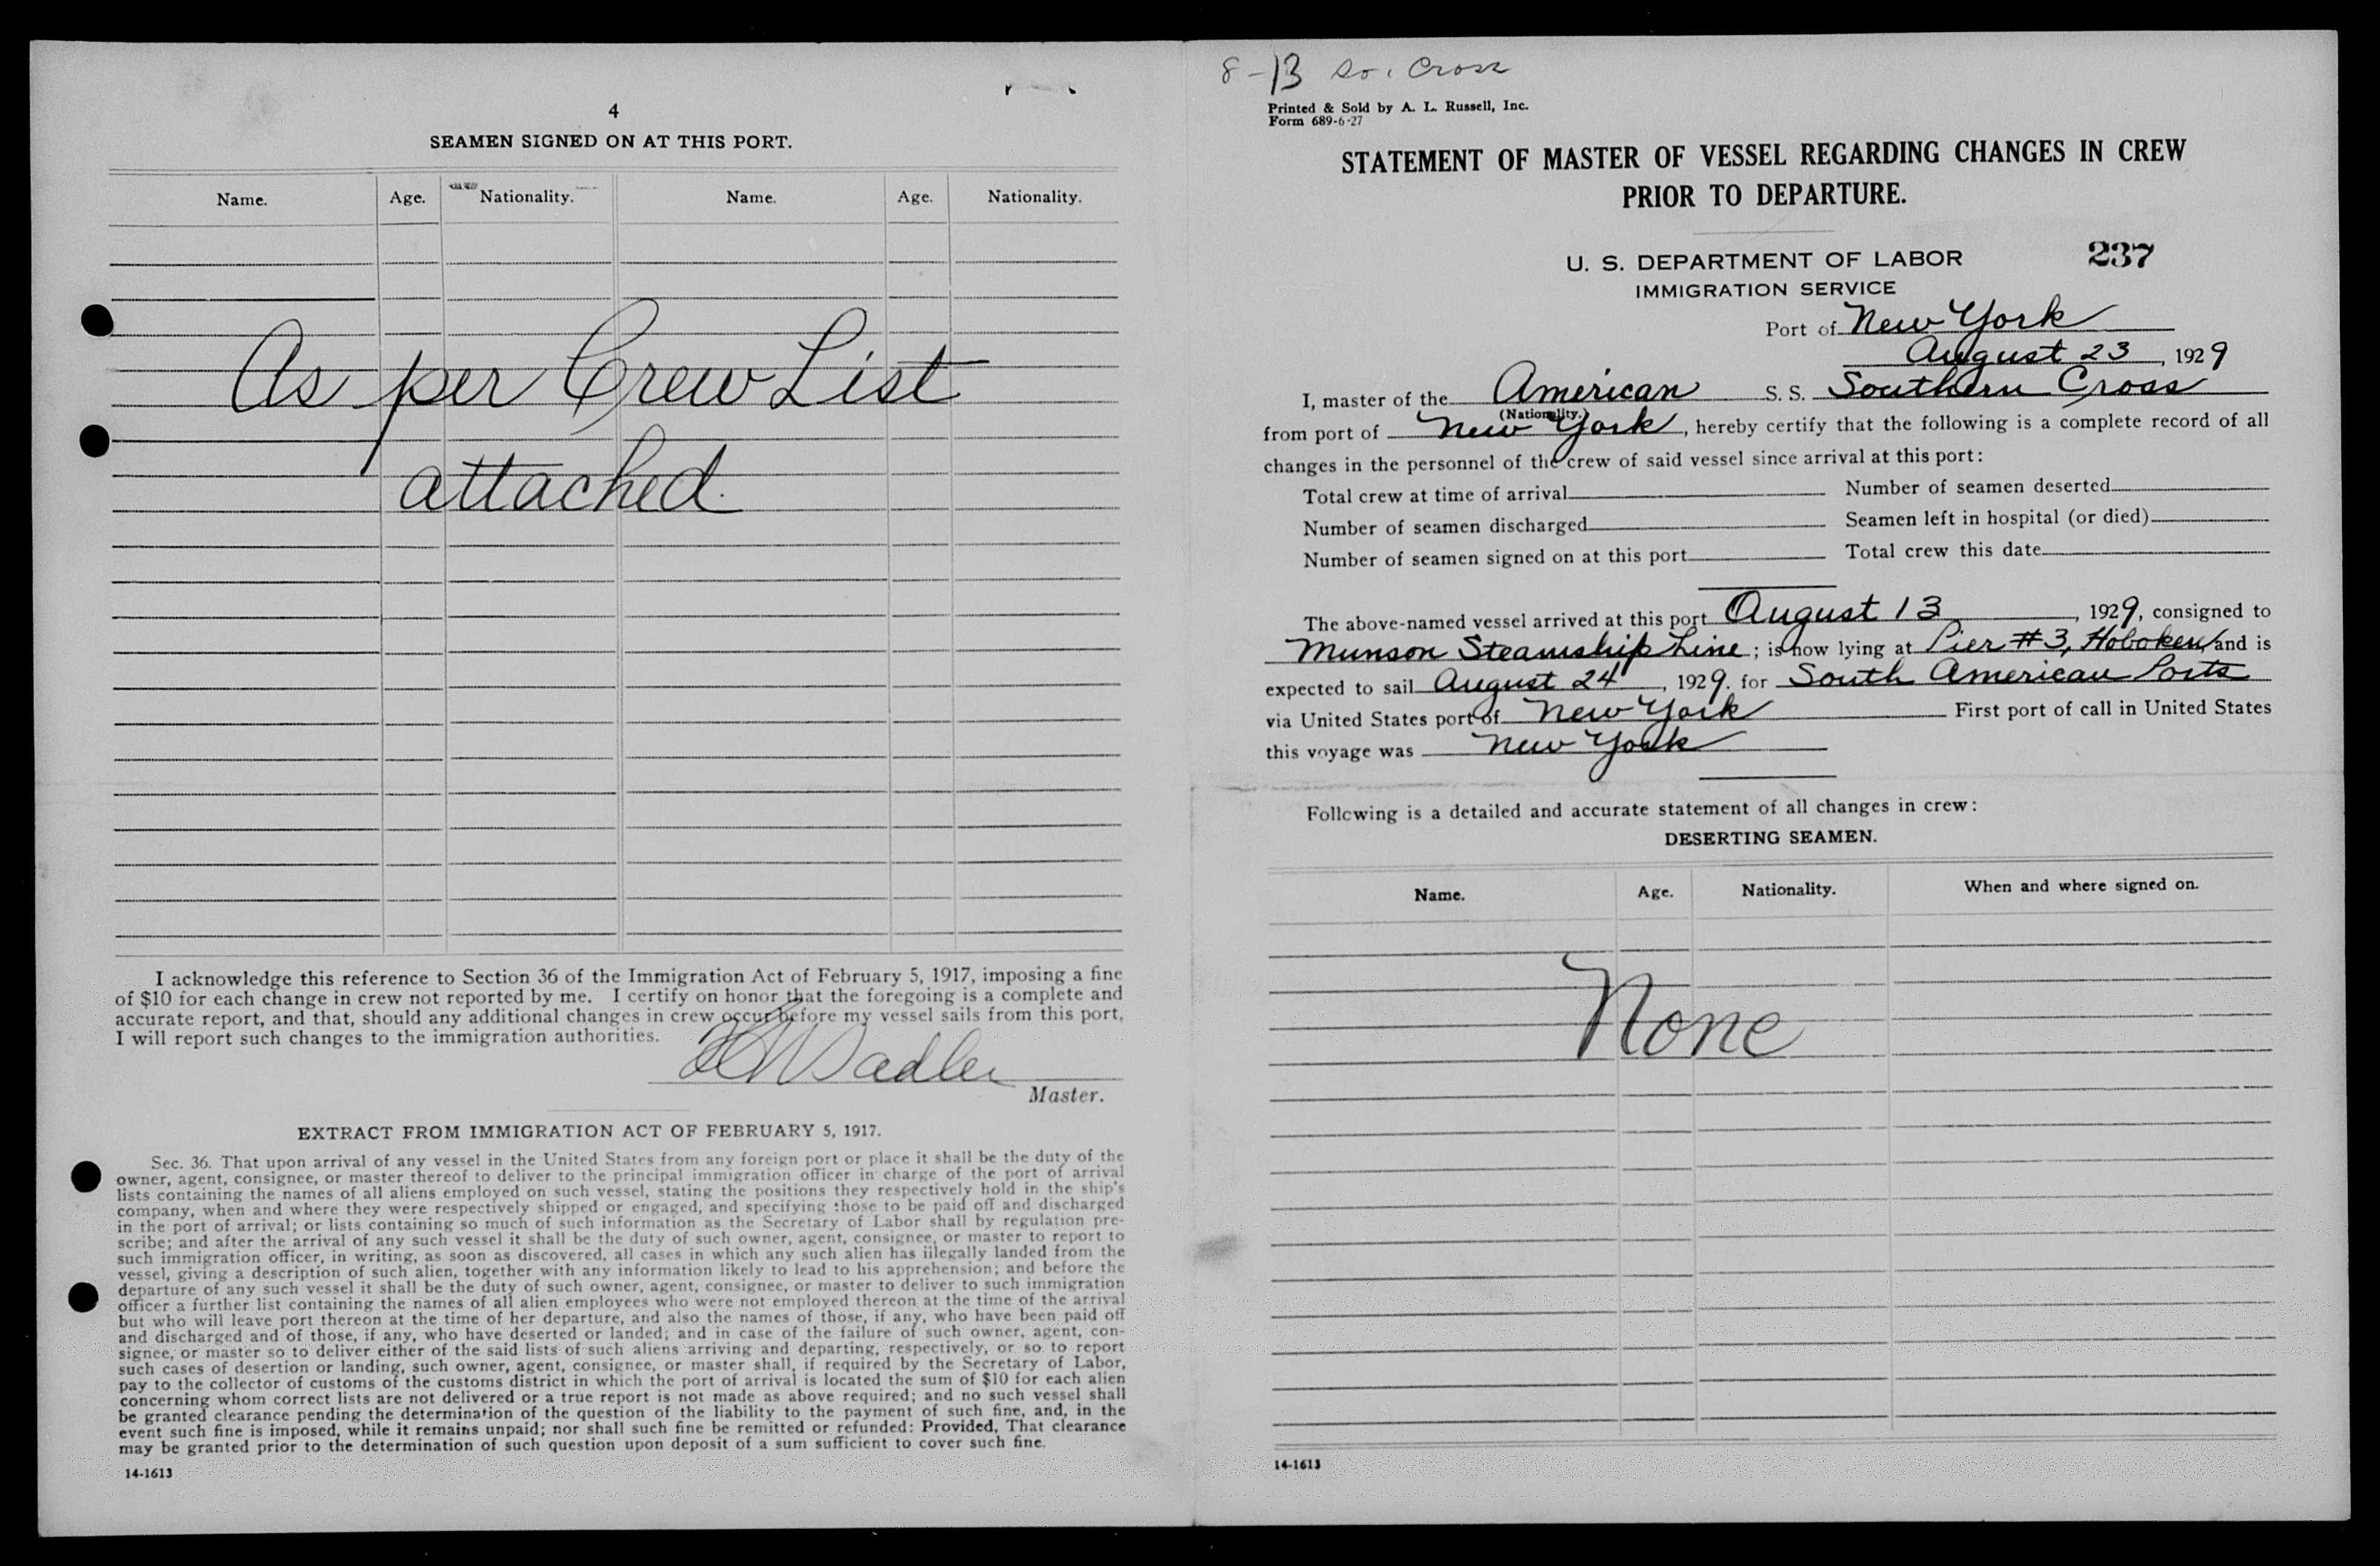 4
SEAMEN SIGNED ON AT THIS PORT.
Name. Age. Nationality. Name. Age. Nationality.
As per Crew List
attached.
I acknowledge this reference to Section 36 of the Immigration Act of February 5, 1917, imposing a fine
of $10 for each change in crew not reported by me. I certify on honor that the foregoing is a complete and
accurate report, and that, should any additional changes in crew occur before my vessel sails from this port,
I will report such changes to the immigration authorities.
Sadler
Master.
EXTRACT FROM IMMIGRATION ACT OF FEBRUARY 5, 1917.
Sec. 36. That upon arrival of any vessel in the United States from any foreign port or place it shall be the duty of the
owner, agent, consignee, or master thereof to deliver to the principal immigration officer in charge of the port of arrival
lists containing the names of all aliens employed on such vessel, stating the positions they respectively hold in the ship's
company, when and where they were respectively shipped or engaged, and specifying those to be paid off and discharged
in the port of arrival; or lists containing so much of such information as the Secretary of Labor shall by regulation pre-
scribe; and after the arrival of any such vessel it shall be the duty of such owner, agent, consignee, or master to report to
such immigration officer, in writing, as soon as discovered, all cases in which any such alien has illegally landed from the
vessel, giving a description of such alien, together with any information likely to lead to his apprehension; and before the
departure of any such vessel it shall be the duty of such owner, agent, consignee, or master to deliver to such immigration
officer a further list containing the names of all alien employees who were not employed thereon at the time of the arrival
but who will leave port thereon at the time of her departure, and also the names of those, if any, who have been paid off
and discharged and of those, if any, who have deserted or landed; and in case of the failure of such owner, agent, con-
signee, or master so to deliver either of the said lists of such aliens arriving and departing, respectively, or so to report
such cases of desertion or landing, such owner, agent, consignee, or master shall, if required by the Secretary of Labor,
pay to the collector of customs of the customs district in which the port of arrival is located the sum of $10 for each alien
concerning whom correct lists are not delivered or a true report is not made as above required; and no such vessel shall
be granted clearance pending the determination of the question of the liability to the payment of such fine, and, in the
event such fine is imposed, while it remains unpaid; nor shall such fine be remitted or refunded: Provided, That clearance
may be granted prior to the determination of such question upon deposit of a sum sufficient to cover such fine.
14-1613
8-13 So. Cross
Printed & Sold by A. L. Russell, Inc.
Form 689-6-27
STATEMENT OF MASTER OF VESSEL REGARDING CHANGES IN CREW
PRIOR TO DEPARTURE.
U. S. DEPARTMENT OF LABOR 237
IMMIGRATION SERVICE
Port of New York
August 23, 1929
I, master of the American S. S. Southern Cross
(Nationality.)
from port of New York, hereby certify that the following is a complete record of all
changes in the personnel of the crew of said vessel since arrival at this port:
Total crew at time of arrival Number of seamen deserted
Number of seamen discharged Seamen left in hospital (or died)
Number of seamen signed on at this port Total crew this date
The above-named vessel arrived at this port August 13, 1929, consigned to
Munson Steamship Line; is now lying at Pier #3, Hoboken and is
expected to sail August 24, 1929. for South American Ports
via United States port of New York First port of call in United States
this voyage was New York
Following is a detailed and accurate statement of all changes in crew:
DESERTING SEAMEN.
Name. Age. Nationality. When and where signed on.
None
14-1613